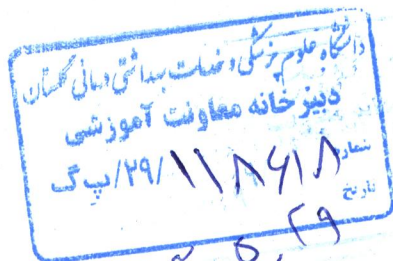 دانشگاه علوم پزشکی و خدمات بهداشتی درمانی گلستان
دبیرخانه معاونت آموزشی
شماره ۱۱۸۶۱۸/۲۹/پ‌گ
تاریخ